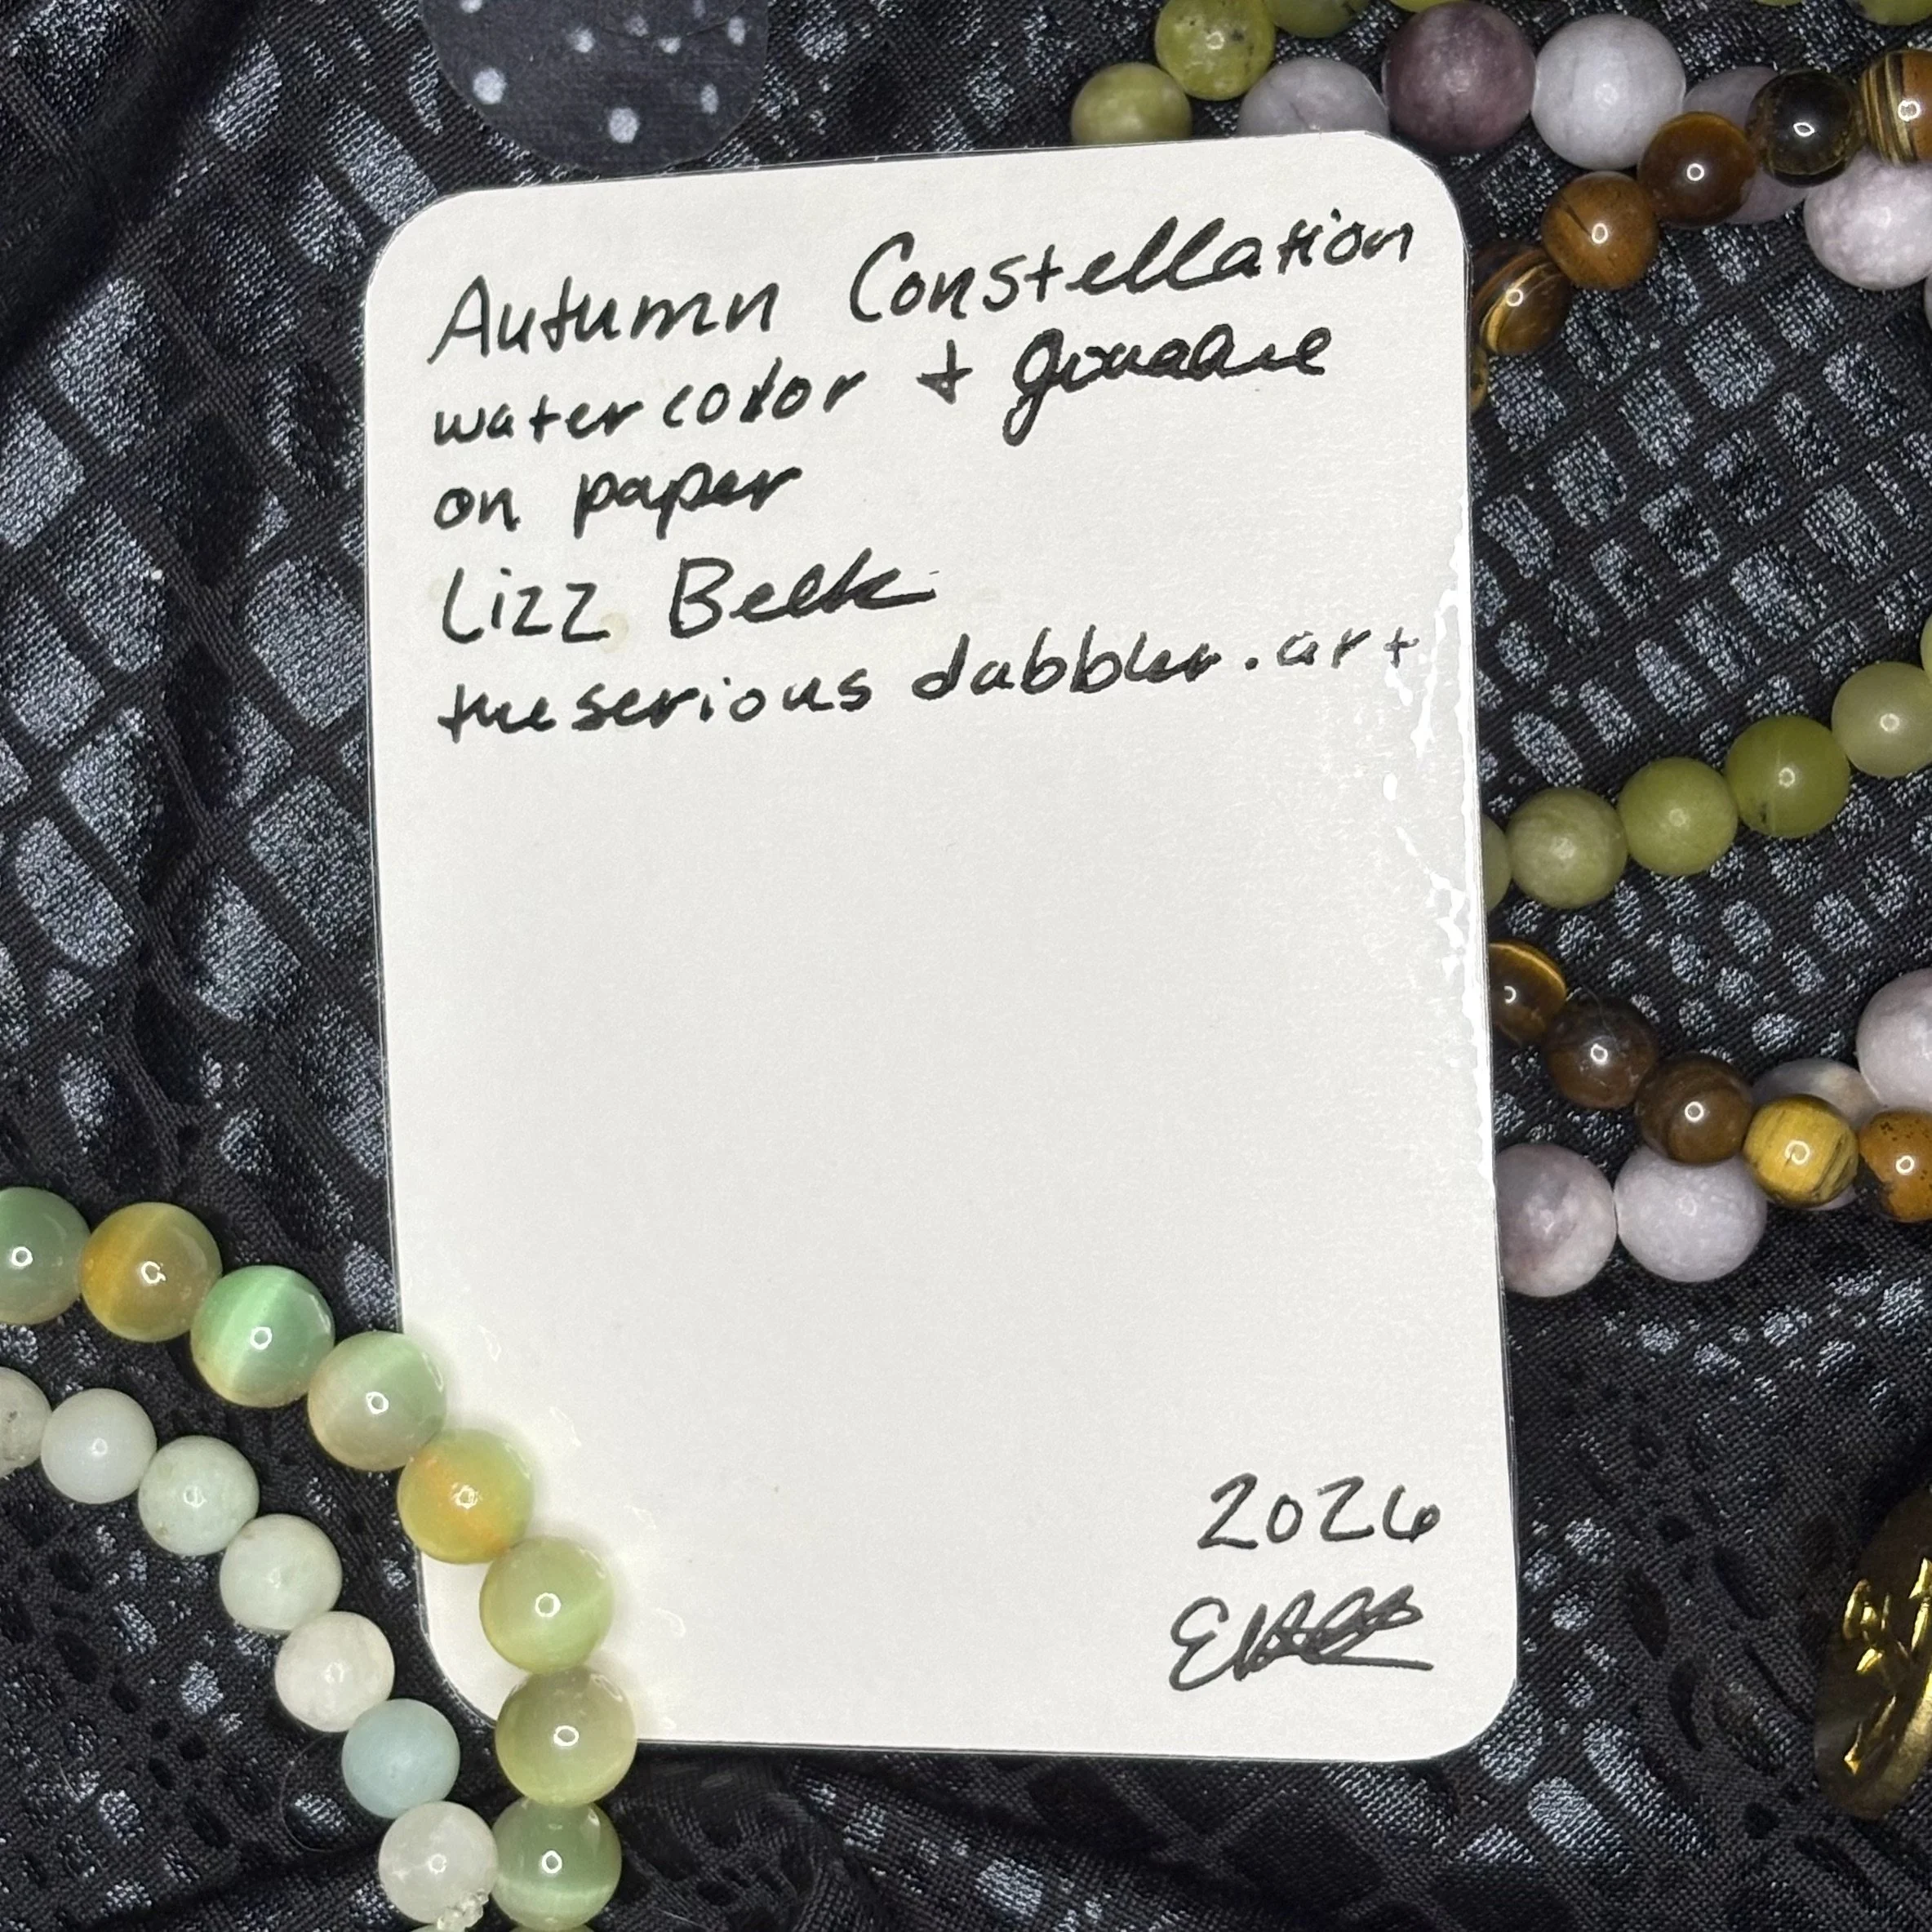 Autumn Constellation
watercolor + gouache
on paper
Lizz Belk
theseriousdabbler.art
2026